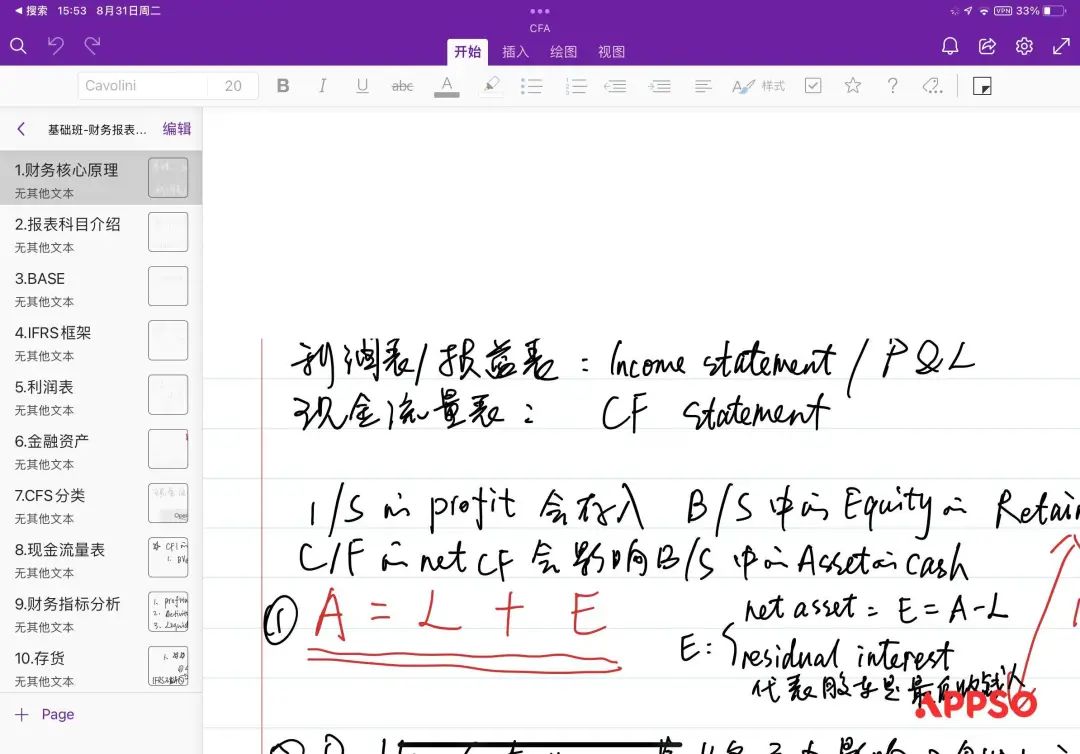 搜索 15:53 8月31日周二
VPN 33%
CFA
开始 插入 绘图 视图
Cavolini 20 B I U abc A A 样式 ?
基础班-财务报表... 编辑
1.财务核心原理
无其他文本
2.报表科目介绍
无其他文本
3.BASE
无其他文本
4.IFRS框架
无其他文本
5.利润表
无其他文本
6.金融资产
无其他文本
7.CFS分类
无其他文本
8.现金流量表
无其他文本
9.财务指标分析
无其他文本
10.存货
无其他文本
+ Page
利润表/损益表：Income statement / P&L
现金流量表： CF statement
I/S的profit会存入 B/S中的Equity的 Retain
C/F的net CF会影响B/S中的Asset的cash
① A = L + E
net asset = E = A-L
E: residual interest
代表股东是最后收钱人
APPSO